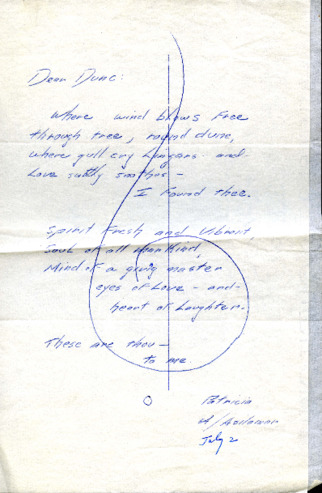 Dear Dunc:
Where wind blows free
through tree, round dune,
where gull cry lingers and
Love softly soothes –
I found thee.
Spirit fresh and vibrant
Soul of all mankind,
Mind of a giving master
eyes of Love – and –
heart of Laughter.
These are thou –
to me.
Patricia
July 2